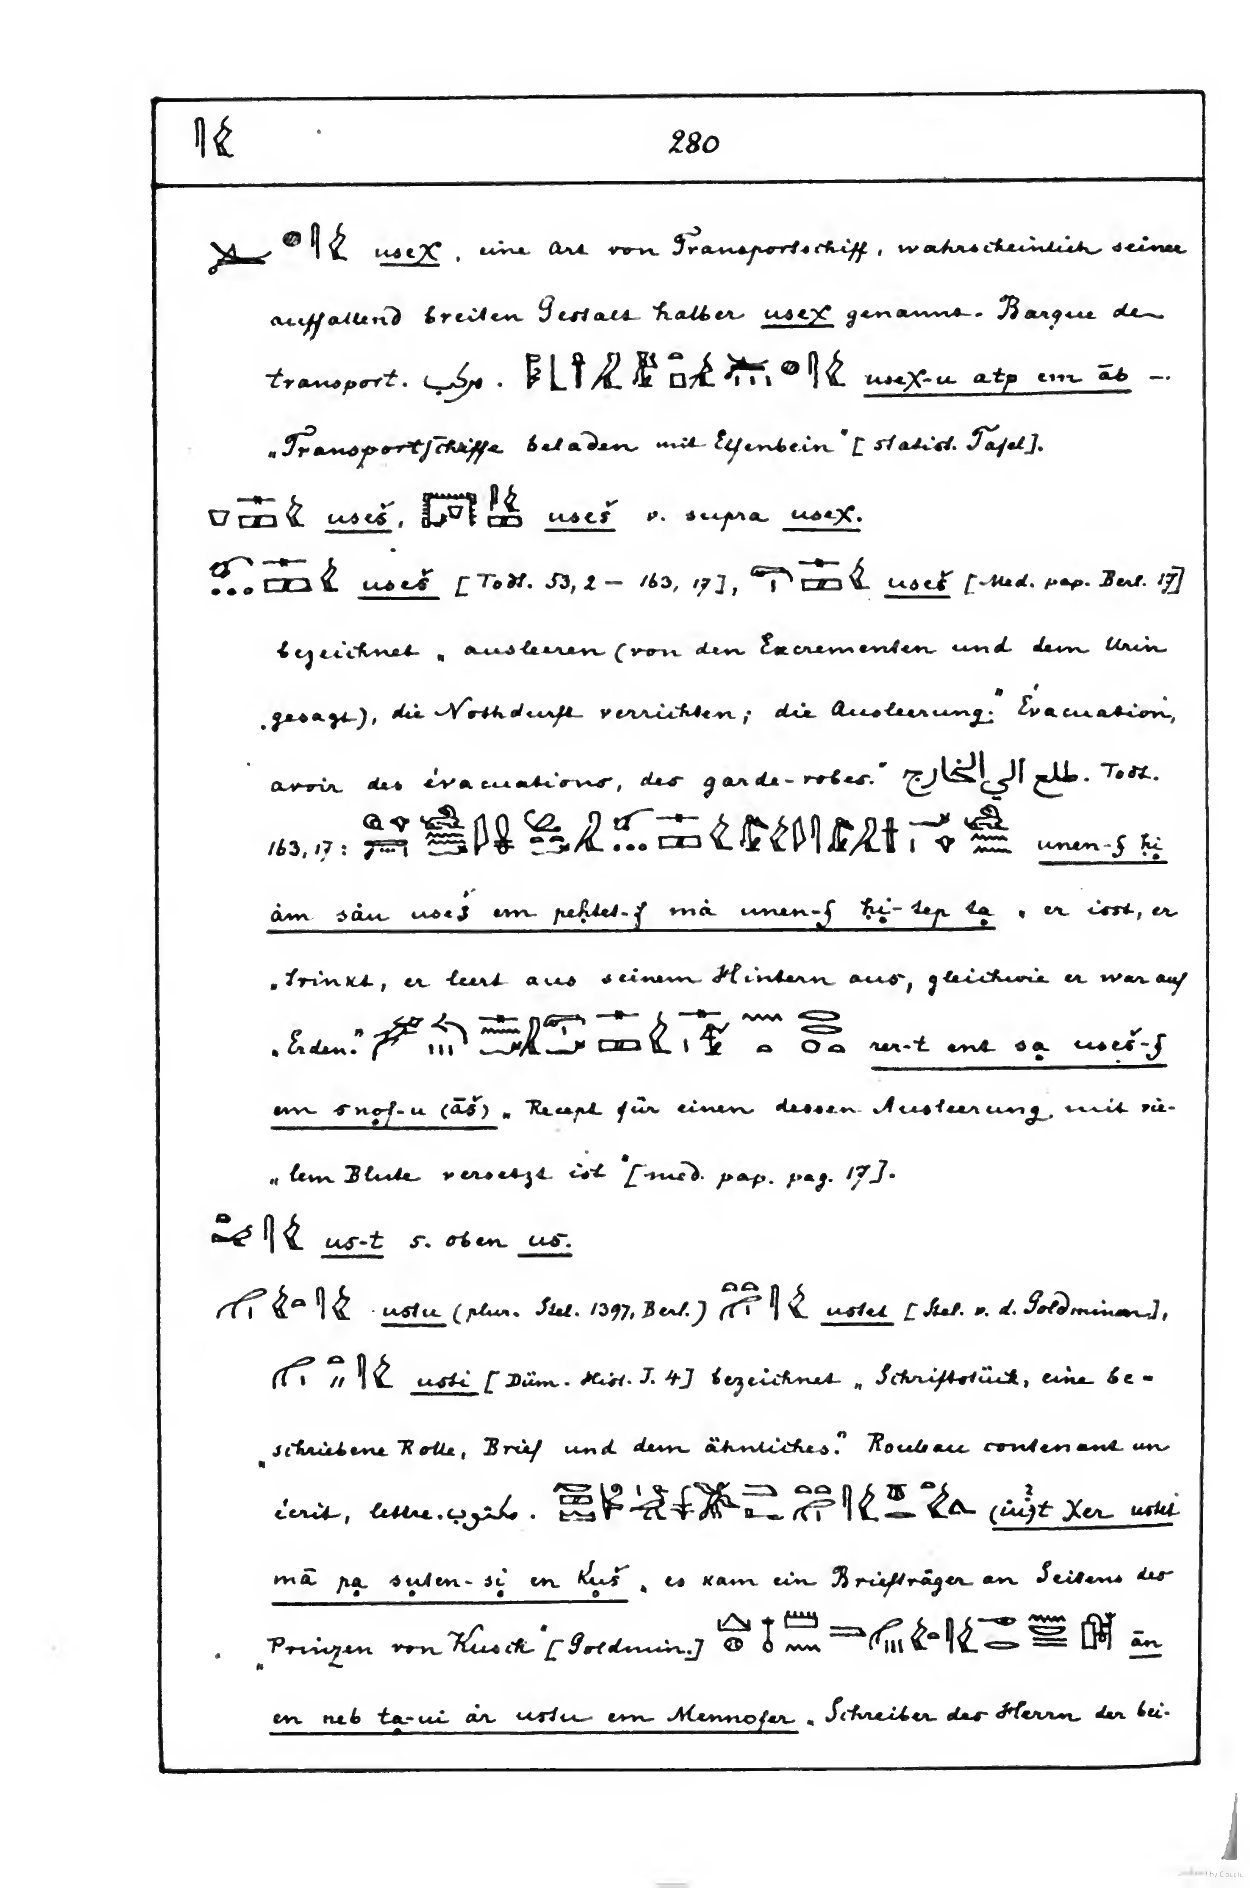 280
useχ, eine Art von Transportschiff, wahrscheinlich seiner
auffallend breiten Gestalt halber useχ genannt. Barque de
transport. مركب. useχ-u atp em āb —.
„Transportschiffe beladen mit Elfenbein" [statist. Tafel].
useš, useš v. supra useχ.
useš [Todt. 53, 2 — 163, 17], useš [Med. pap. Berl. 17]
bezeichnet „ausleeren (von den Excrementen und dem Urin
„gesagt), die Nothdurft verrichten; die Ausleerung." Évacuation,
avoir des évacuations, des garde-robes." طلع الي الخارج. Todt.
163, 17: unen-f ḥi
ȧm sȧu useš em peḥtet-f mȧ unen-f ḥi-tep ta „er isst, er
„trinkt, er leert aus seinem Hintern aus, gleichwie er war auf
„Erden." rer-t ent sa useš-f
em snof-u (āš) „Recept für einen dessen Ausleerung mit vie-
„lem Blute versetzt ist" [med. pap. pag. 17].
us-t s. oben us.
ustu (plur. Stel. 1397, Berl.] ustet [Stel. v. d. Goldminen],
usti [Düm. Hist. I. 4] bezeichnet „Schriftstück, eine be-
„schriebene Rolle, Brief und dem ähnliches." Rouleau contenant un
écrit, lettre. مكتوب. χer ustet
mā pa suten-si en Kuš „es kam ein Briefträger an Seitens des
„Prinzen von Kusch" [Goldmin.] ān
en neb ta-ui ȧr ustu em Mennofer „Schreiber des Herrn der bei-